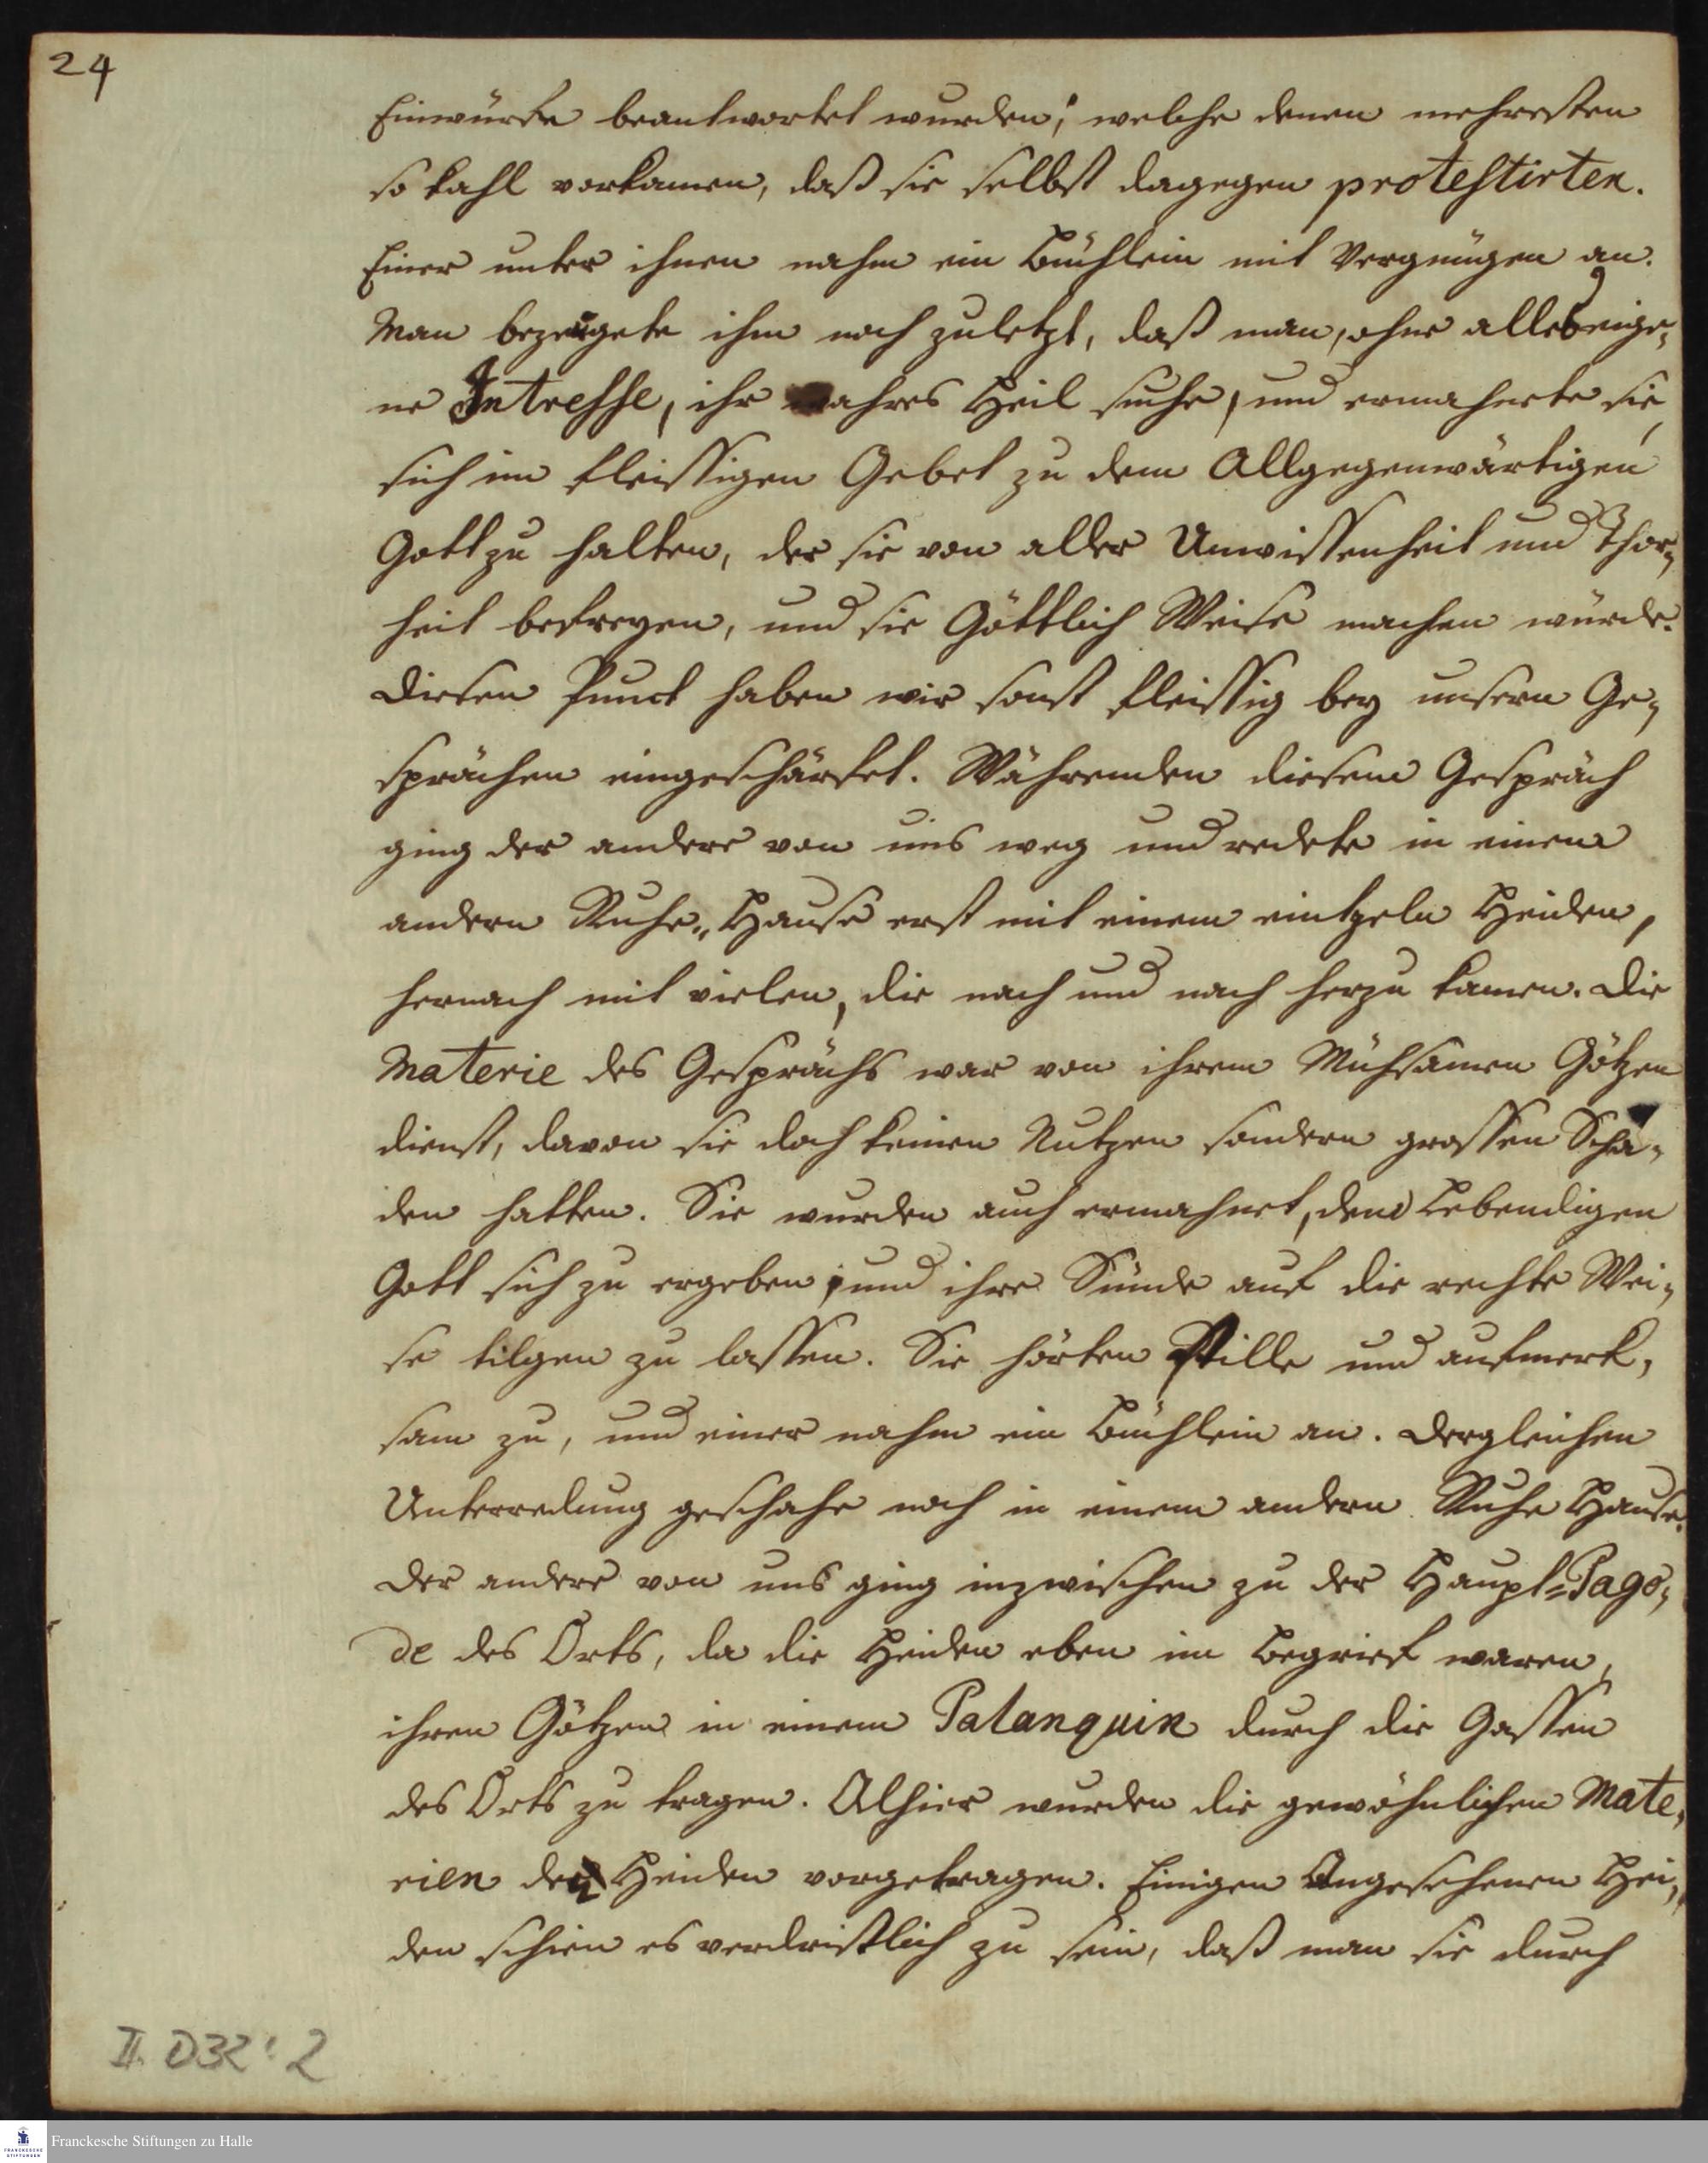 24
Einwürfe beantwortet wurden, welche denen mehresten
so kahl vorkamen, daß sie selbst dagegen protestirten.
Einer unter ihnen nahm ein Büchlein mit Vergnügen an.
Man bezeugete ihm noch zuletzt, daß man, ohne alles eige¬
ne Intresse, ihr wahres Heil suche, und ermahnte sie,
sich im fleissigen Gebet zu dem Allgegenwärtigen
Gott zu halten, der sie von aller Unwissenheit und Thor¬
heit befreyen, und sie Göttlich Weise machen würde.
Diesen Punct haben wir sonst fleissig bey unsern Ge¬
sprächen eingeschärfet. Währenden diesem Gespräch
ging der andere von uns weg und redete in einem
andern Ruhe-Hause erst mit einem eintzeln Heiden,
hernach mit vielen, die nach und nach herzu kamen. Die
Materie des Gesprächs war von ihrem Mühsamen Götzen
dienst, davon sie doch keinen Nutzen sondern grossen Scha¬
den hatten. Sie wurden auch ermahnet, dem Lebendigen
Gott sich zu ergeben, und ihre Sünde auf die rechte Wei¬
se tilgen zu lassen. Sie hörten Stille und aufmerk¬
sam zu, und einer nahm ein Büchlein an. Dergleichen
Unterredung geschahe noch in einem andern Ruhe Hause.
Der andere von uns ging inzwischen zu der Haupt-Pago¬
de des Orts, da die Heiden eben im Begrief waren,
ihren Götzen in einem Palanquin durch die Gassen
des Orts zu tragen. Alhier wurden die gewöhnlichen Mate¬
rien den Heiden vorgetragen. Einigen Angesehenen Hei¬
den schien es verdrißlich zu sein, daß man sie durch
II. D32:2
Franckesche Stiftungen zu Halle
FRANCKESCHE
STIFTUNGEN